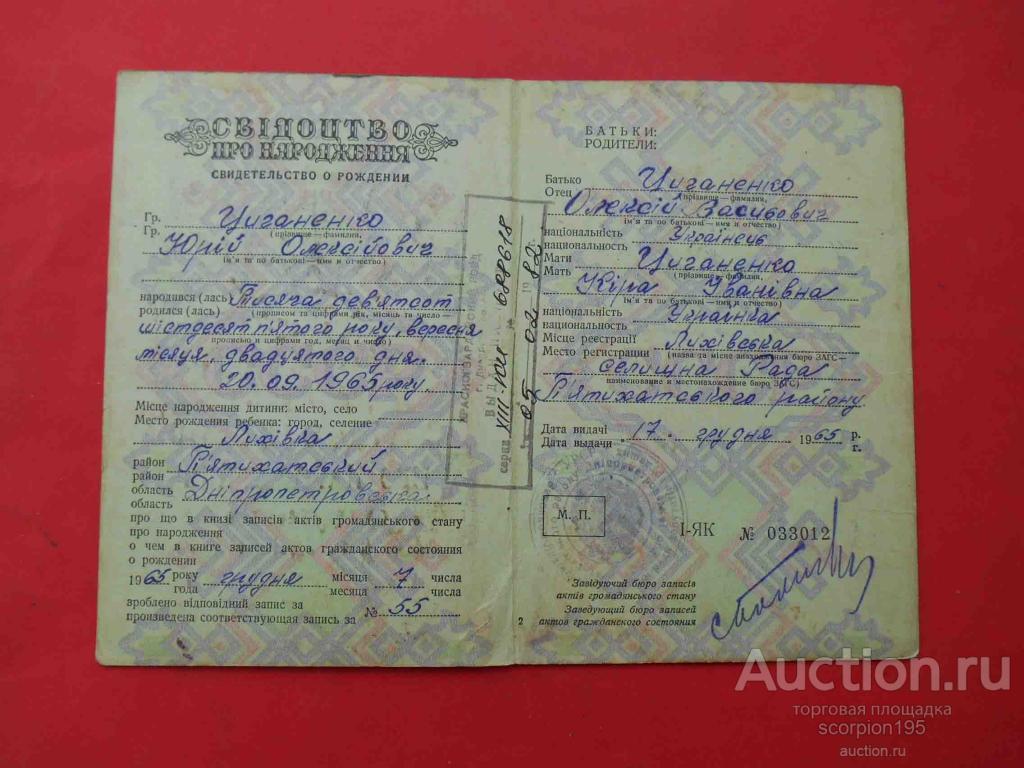 СВІДОЦТВО
ПРО НАРОДЖЕННЯ
СВИДЕТЕЛЬСТВО О РОЖДЕНИИ
Гр. Циганенко
Гр. (прізвище — фамилия,
Юрій Олексійович
ім'я та по батькові — имя и отчество)
народився (лась) Тисяча дев'ятсот
родился (лась) (прописом та цифрами рік, місяць та число —
шістдесят п'ятого року, вересня
прописью и цифрами год, месяц и число)
місяця, двадцятого дня.
20.09. 1965 року
Місце народження дитини: місто, село
Место рождения ребенка: город, селение
Лихівка
район П'ятихатський
район
область Дніпропетровська
область
про що в книзі записів актів громадянського стану
про народження
о чем в книге записей актов гражданского состояния
о рождении
1965 року грудня місяця 7 числа
года месяца числа
зроблено відповідний запис за № 55
произведена соответствующая запись за
ВЫД
серия XIII-ЮЛ № 688618
05 02 1982
БАТЬКИ:
РОДИТЕЛИ:
Батько Циганенко
Отец (прізвище — фамилия,
Олексій Васильович
ім'я та по батькові — имя и отчество)
національність Українець
национальность
Мати Циганенко
Мать (прізвище — фамилия,
Кіра Іванівна
ім'я та по батькові — имя и отчество)
національність Українка
национальность
Місце реєстрації Лихівська
Место регистрации (назва та місце знаходження бюро ЗАГС —
селищна Рада
наименование и местонахождение бюро ЗАГС)
П'ятихатського району
Дата видачі "17" грудня 1965 р.
Дата выдачи г.
М. П.
I-ЯК № 033012
Завідуючий бюро записів
актів громадянського стану
Заведующий бюро записей
актов гражданского состояния
2
Auction.ru
торговая площадка
scorpion195
auction.ru